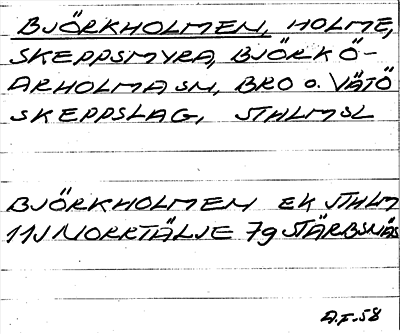 BJÖRKHOLMEN, HOLME,
SKEPPSMYRA, BJÖRKÖ-
ARHOLMA SN, BRO o. VÄTÖ
SKEPPSLAG, STHLMSL
BJÖRKHOLMEN EK STHLM
11J NORRTÄLJE 7g STÄRBSNÄS
A.F-58